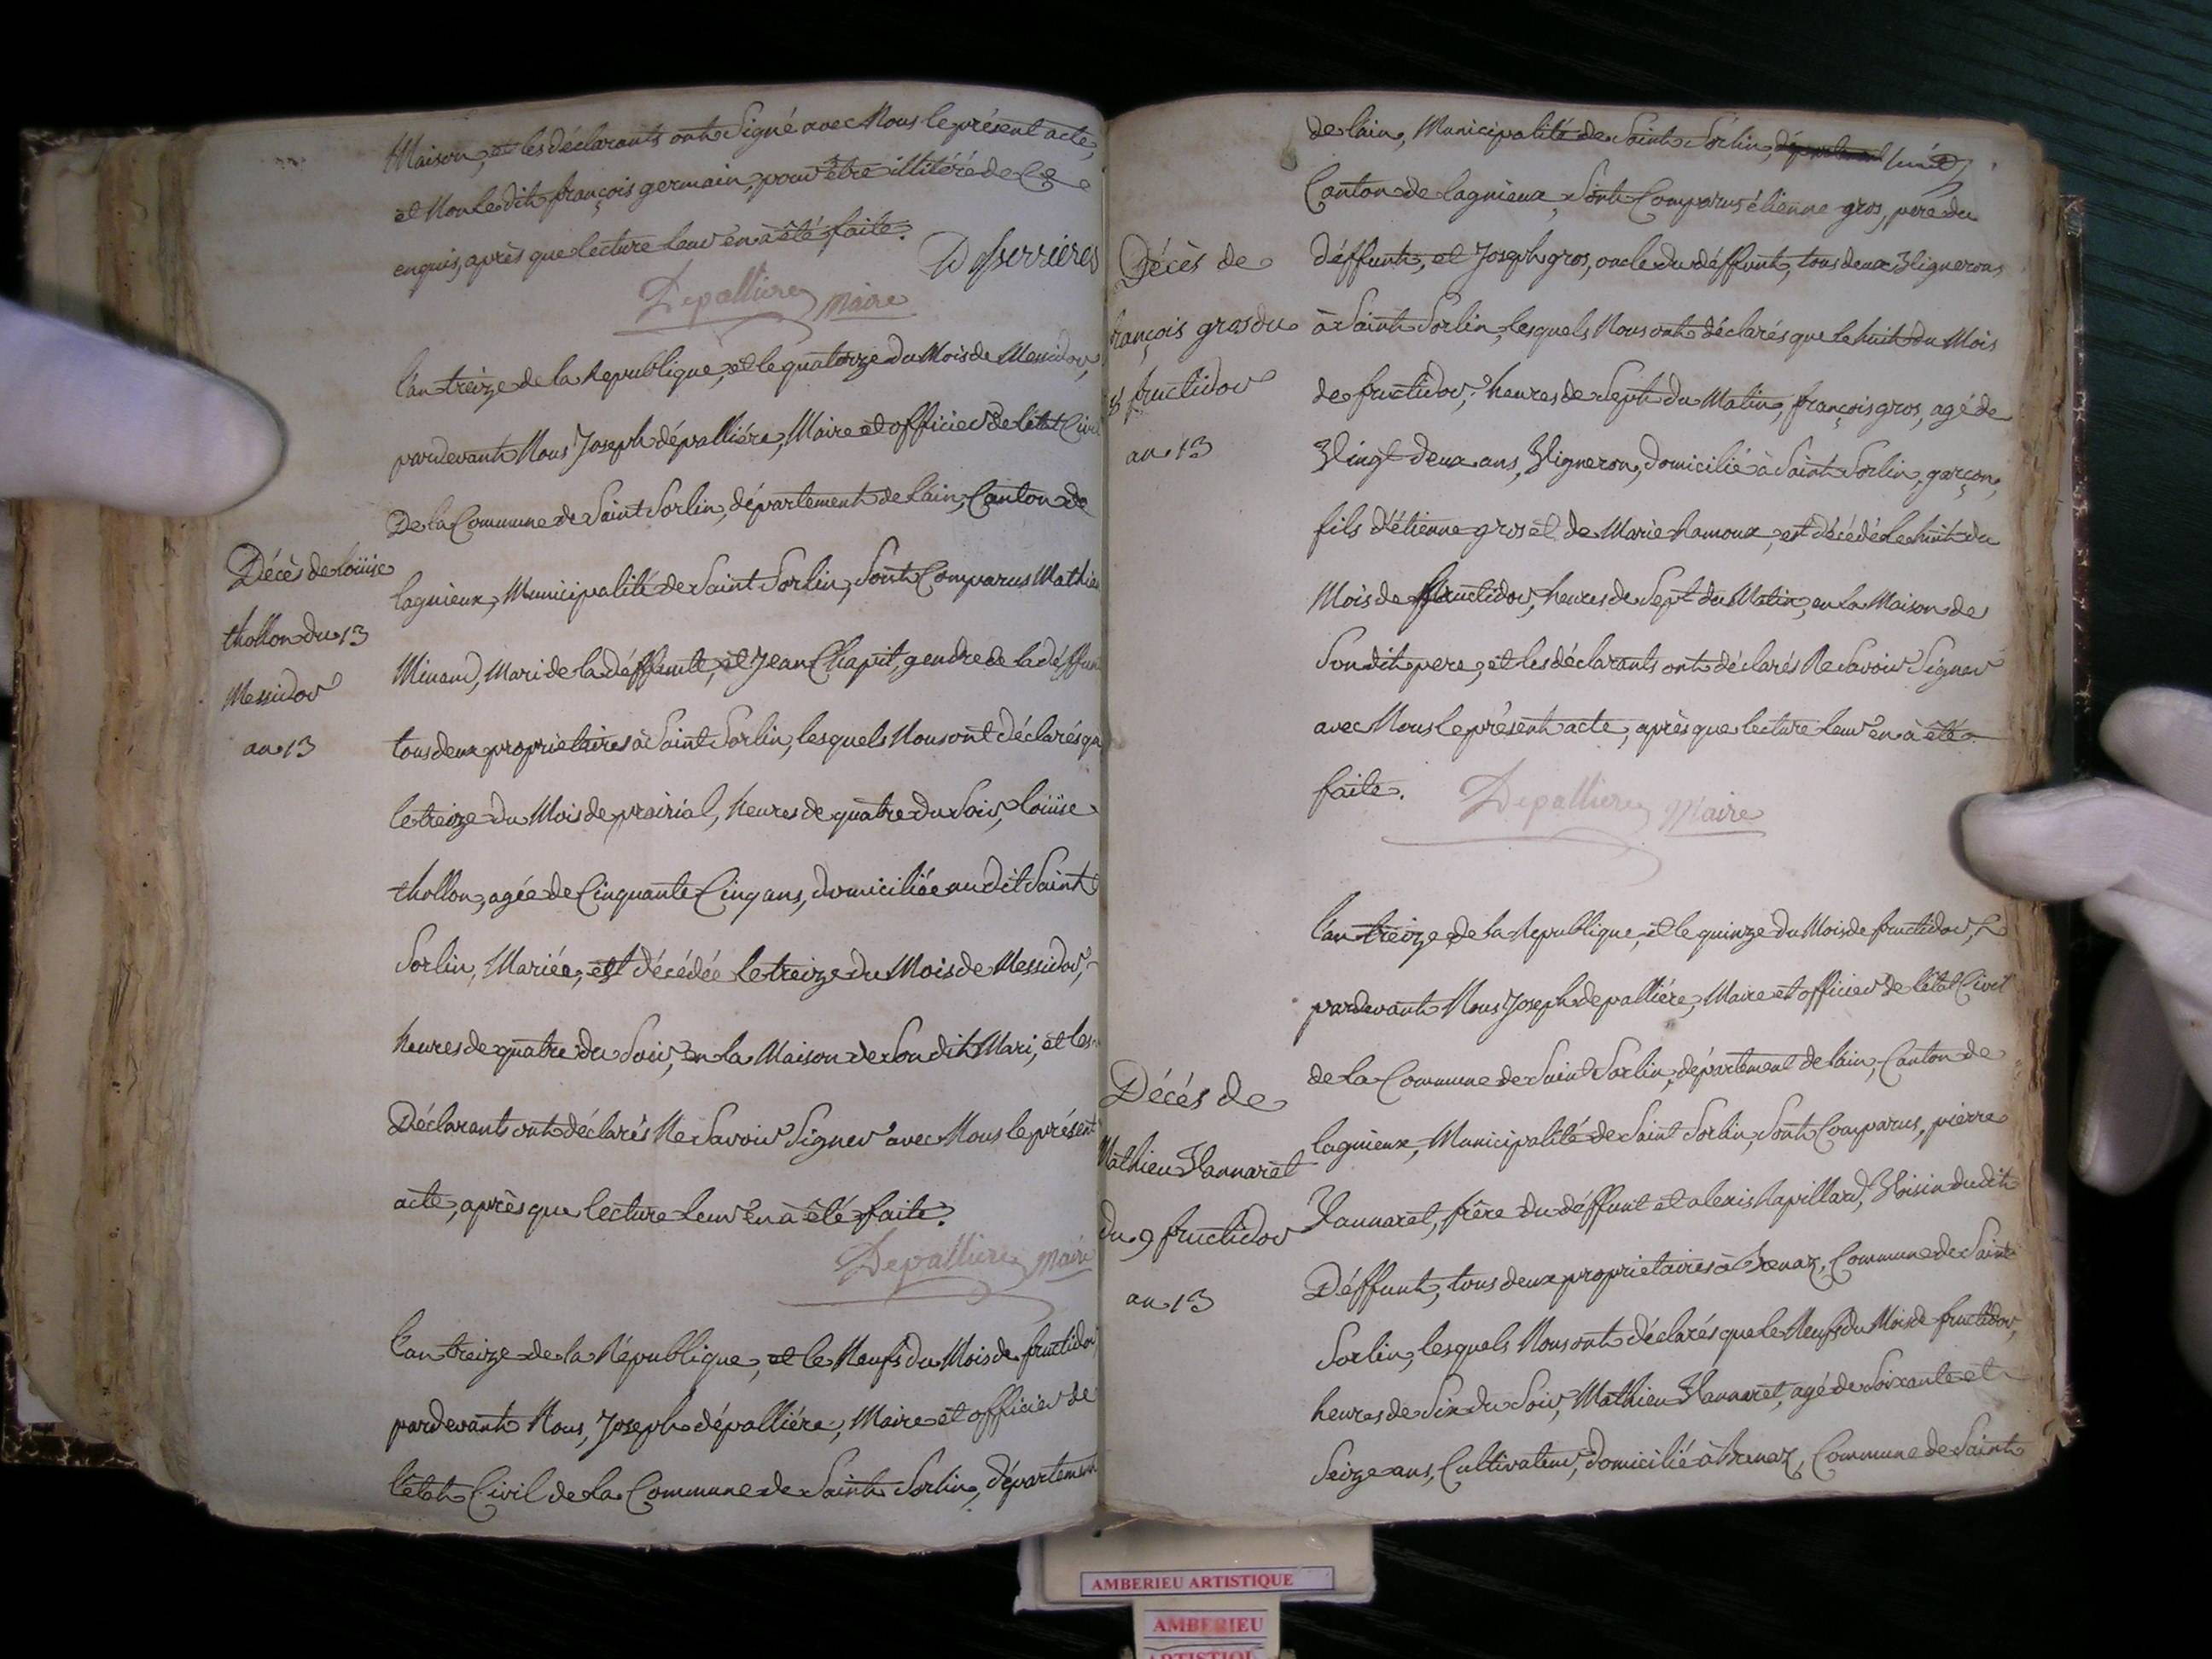 Maison, et les déclarants ont Signé avec Nous le présent acte,
et Non le dit françois germain, pour être illitéré de Ce
enquis, après que lecture leur en à été faite.
Dufserrieres
Depalliere Maire
l'an treize de la Republique, et le quatorze du Mois de Messidor,
pardevant Nous Joseph dépalliére, Maire et officier de létat Civil
De la Commune de Saint Sorlin, département de Lain, Canton de
Décès de loüise
thollon du 13
Messidor
an 13
lagnieux, Municipalité de Saint Sorlin, Sont Comparus Mathieu
Minand, Mari de la déffunte, et Jean Chapit, gendre de la déffun
tous deux proprietaires à Saint Sorlin, lesquels Nous ont déclarés qu
le treize du Mois de prairial, heures de quatre du Soir, loüise
thollon, agée de Cinquante Cinq ans, domiciliée au dit Saint
Sorlin, Mariée, est décédée le treize du Mois de Messidor,
heures de quatre du Soir, en la Maison de Son dit Mari, et les
Déclarants ont déclarés Ne Savoir Signer avec Nous le présent
acte, après que lecture leur en à été faite.
Depalliere Maire
l'an treize de la République, et le Neuf du Mois de fructidor
pardevant Nous, Joseph dépalliére, Maire et officier de
l'état Civil de la Commune de Saint Sorlin, département
de lain, Municipalité de Saint Sorlin,
Canton de lagnieux, Sont Comparus étienne gros, pere du
Décès de
françois gros du
8 fructidor
an 13
déffunt, et Joseph gros, oncle du déffunt, tous deux Vignerons
à Saint Sorlin, lesquels Nous ont déclarés que le huit du Mois
de fructidor, heures de Sept du Matin, françois gros, agé de
Vingt deux ans, Vigneron, domicilié à Saint Sorlin, garçon,
fils d'étienne gros et de Marie Ramoux, est décédé le huit du
Mois de fructidor, heures de Sept du Matin, en la Maison de
Son dit pere, et les déclarants ont déclarés Ne Savoir Signer
avec Nous le présent acte, après que lecture leur en à été
faite.
Depalliere Maire
l'an treize de la Republique, et le quinze du Mois de fructidor,
pardevant Nous Joseph depalliére, Maire et officier de létat Civil
de la Commune de Saint Sorlin, département de lain, Canton de
Décés de
Mathieu Vannaret
du 9 fructidor
an 13
lagnieux, Municipalité de Saint Sorlin, Sont Comparus, pierre
Vannaret, frère du déffunt et alexis Rapillard, Voisin du dit
Déffunt, tous deux proprietaires à Brenaz, Commune de Saint
Sorlin, lesquels Nous ont déclarés que le Neuf du Mois de fructidor,
heures de Six du Soir, Mathieu Vannaret, agé de Soixante et
Seize ans, Cultivateur, domicilié à Brenaz, Commune de Saint
AMBERIEU ARTISTIQUE
AMBERIEU
ARTISTIQUE